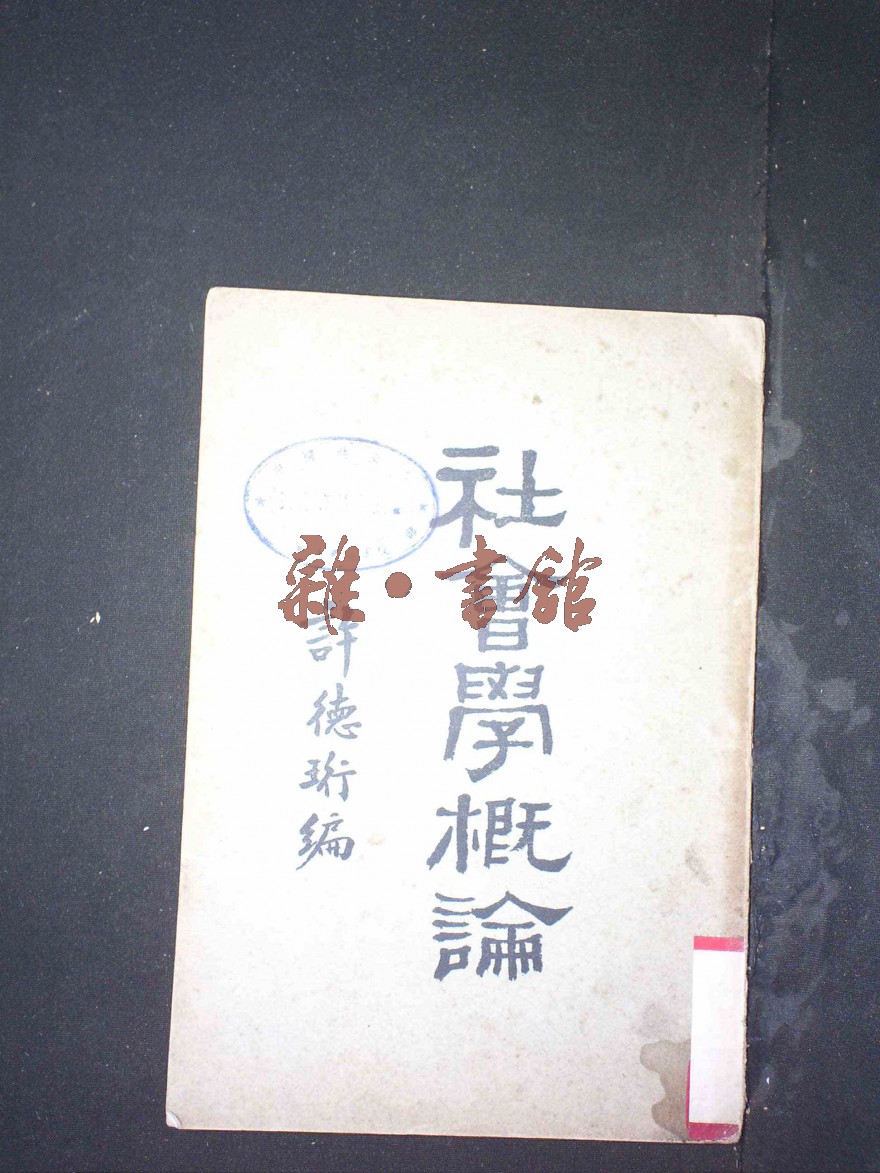 社會學概論
許德珩編
雜·書館